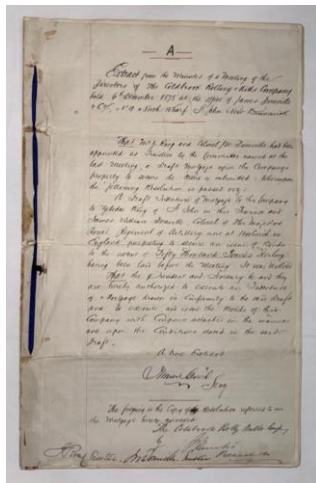 A
Extract from the Minutes of a Meeting of the
Directors of the Coldbrook Rolling Mills Company
held 6th December 1875 at the office of James Domville
& Co. No 9 North Wharf St John New Brunswick
That Mr Z King and Colonel J W Domville has been
appointed as Trustees by the Committee named at the
last Meeting, a Draft Mortgage upon the Company's
property to secure the was submitted. Whereupon
the following Resolution is passed
A Draft Indenture of Mortgage by the Company
to King of St John in this Province and
James William Domville Colonel in Her Majesty's
Royal Regiment of Artillery now at in
England purporting to secure an issue of Bonds
to the extent of Fifty thousand Pounds Sterling
having been laid before the Meeting. It was
That the President and Secretary be and they
are hereby authorized to execute an Indenture
of Mortgage drawn in Conformity to the said Draft
and to execute and issue the Bonds of this
Company with Coupons attached in the manner
and upon the Conditions stated in the said
Draft.
A true Extract
Secy
The foregoing is the Copy of Resolution referred to in
the Mortgage
The Coldbrook Rolling Mills Company
by
Trustee Trustee President